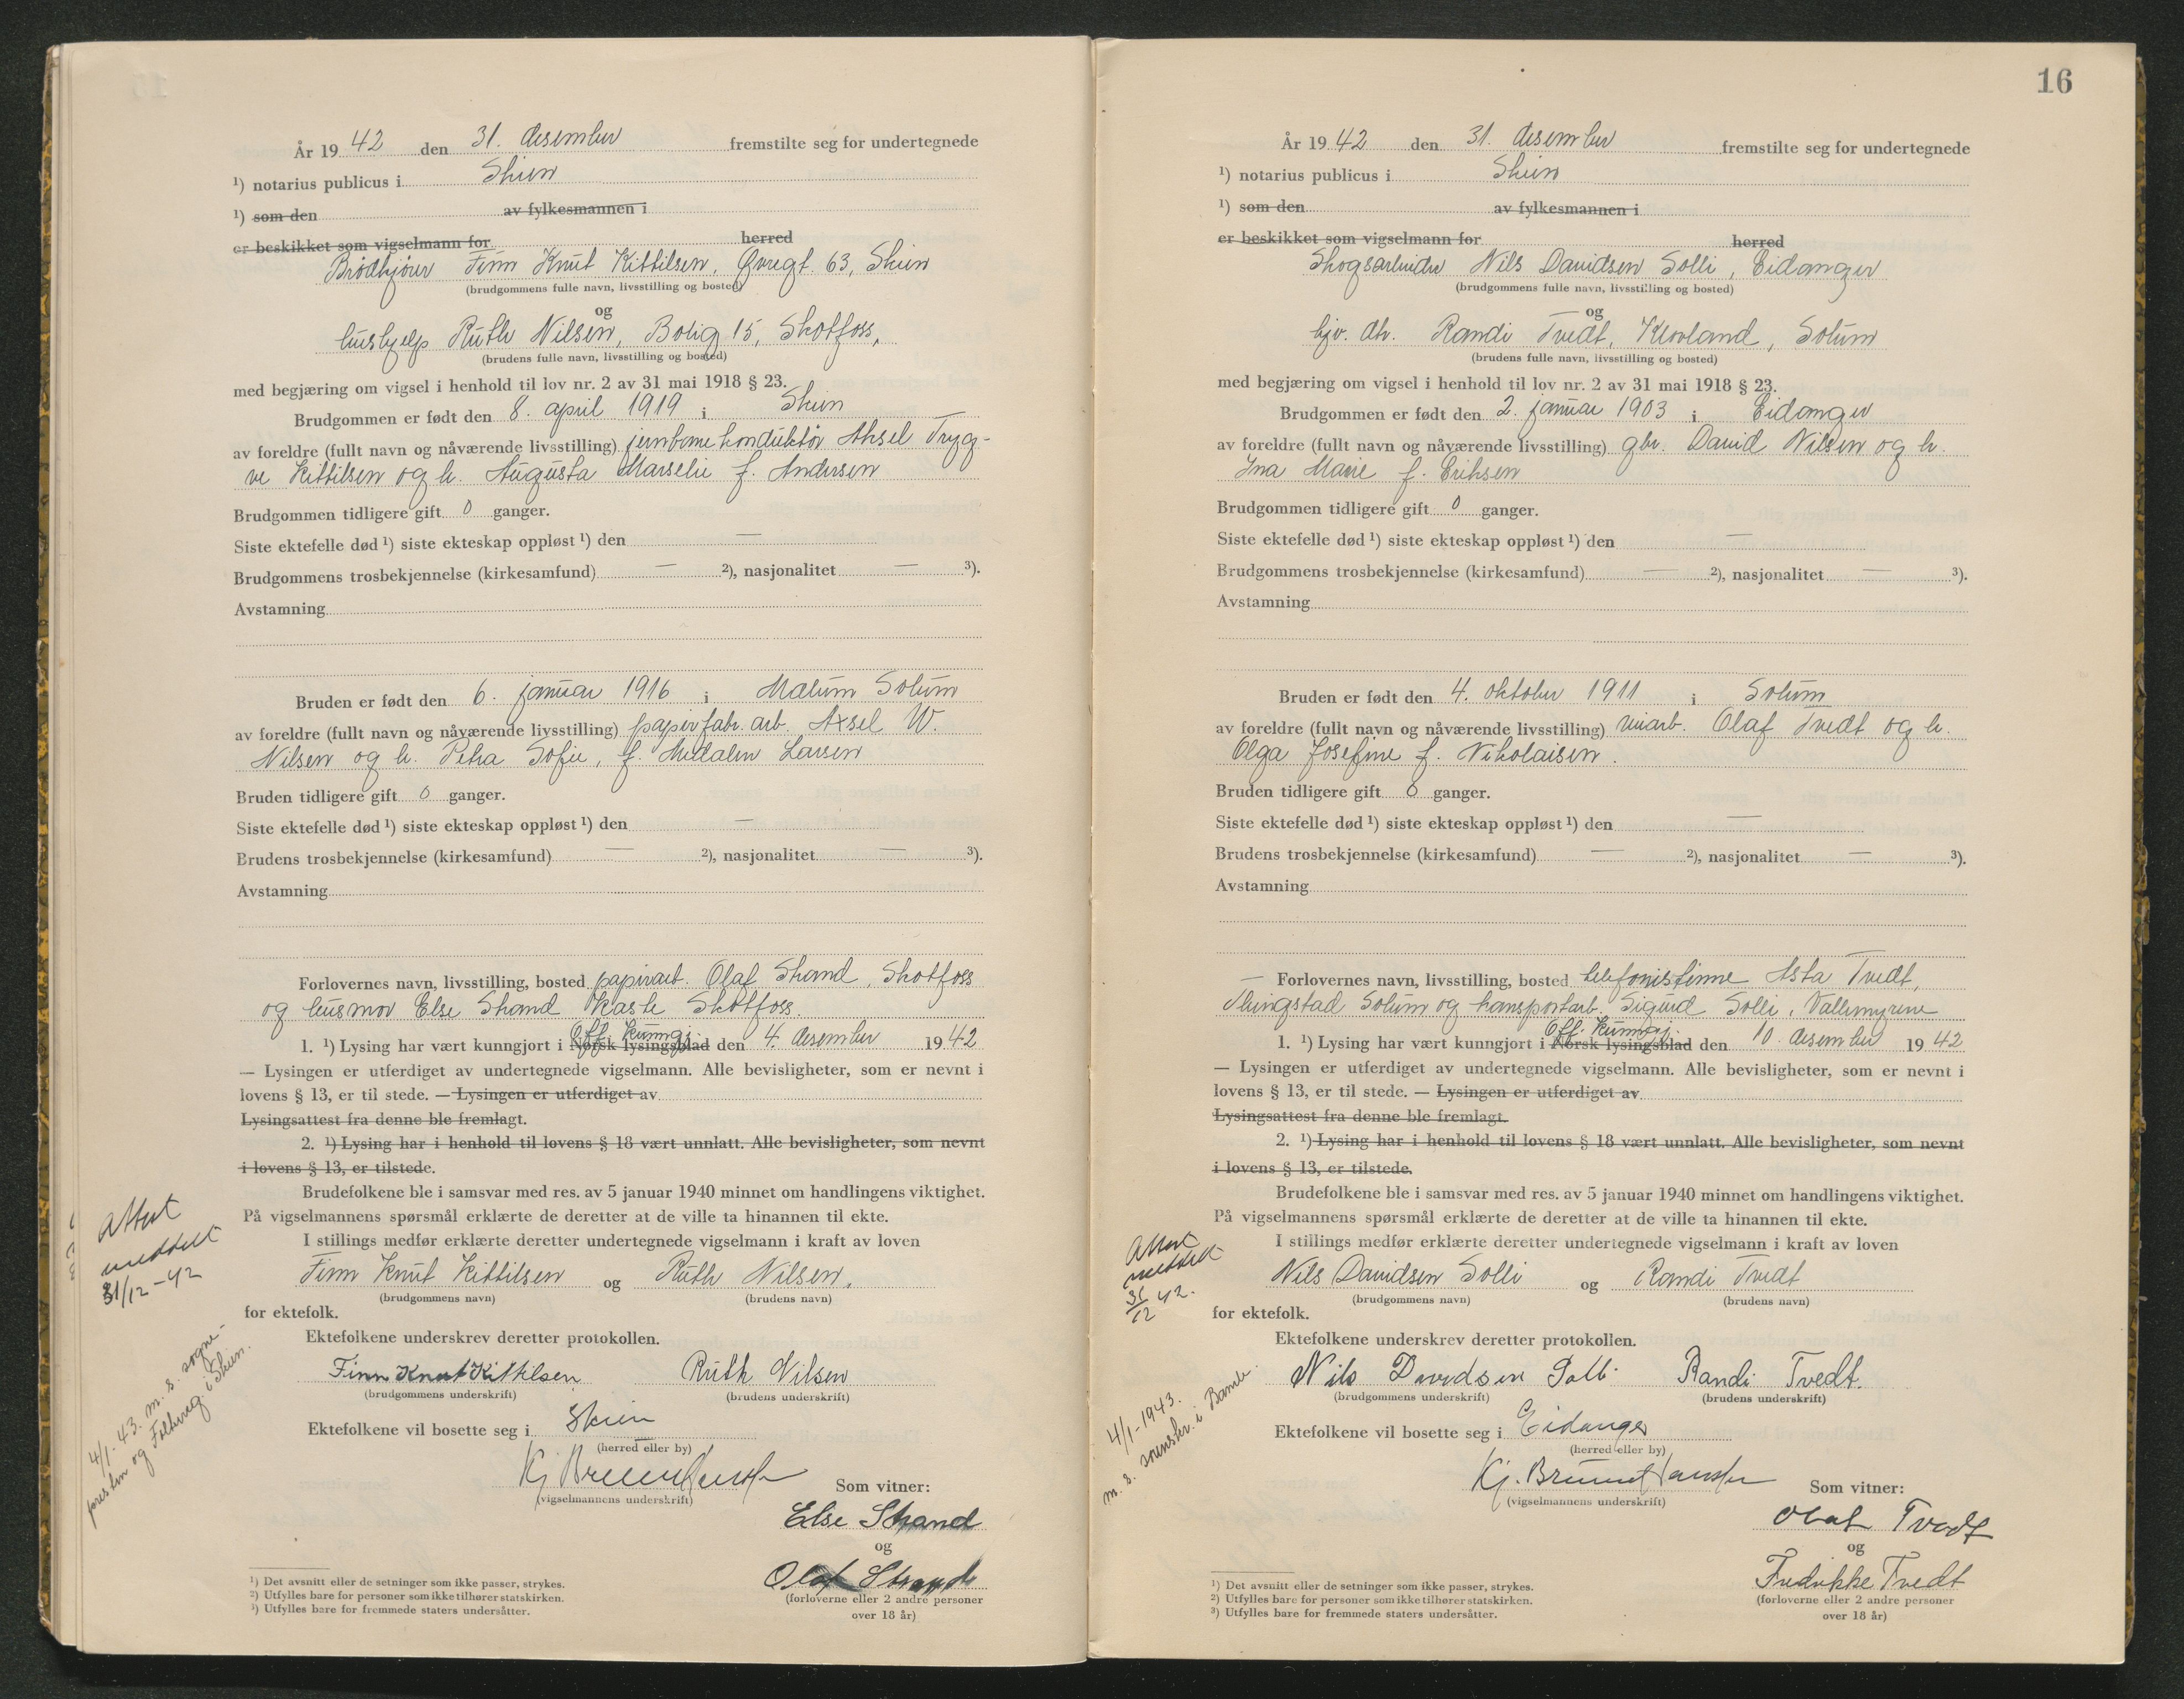 År 19 42 den 31. desember fremstilte seg for undertegnede
¹) notarius publicus i Skien
¹) som den av fylkesmannen i
er beskikket som vigselmann for herred
Brødkjører Finn Knut Kittilsen, Øvregt. 63, Skien
(brudgommens fulle navn, livsstilling og bosted)
og
hushjelp Ruth Nilsen, Bolig 15, Skotfoss,
(brudens fulle navn, livsstilling og bosted)
med begjæring om vigsel i henhold til lov nr. 2 av 31 mai 1918 § 23.
Brudgommen er født den 8. april 1919 i Skien
av foreldre (fullt navn og nåværende livsstilling) jernbanekonduktør Aksel Tryg-
ve Kittilsen og h. Augusta Marselie f. Andersen
Brudgommen tidligere gift 0 ganger.
Siste ektefelle død ¹) siste ekteskap oppløst ¹) den —
Brudgommens trosbekjennelse (kirkesamfund) — ²), nasjonalitet — ³).
Avstamning
Bruden er født den 6. januar 1916 i Mælum Solum
av foreldre (fullt navn og nåværende livsstilling) papirfabr. arb. Axsel W.
Nilsen og h. Petra Sofie, f. Larsen
Bruden tidligere gift 0 ganger.
Siste ektefelle død ¹) siste ekteskap oppløst ¹) den —
Brudens trosbekjennelse (kirkesamfund) — ²), nasjonalitet — ³).
Avstamning
Forlovernes navn, livsstilling, bosted papirarb. Olaf Strand, Skotfoss
og husmor Else Strand Skotfoss.
Off. kunngj.
1. ¹) Lysing har vært kunngjort i Norsk lysingsblad den 4. desember 19 42
— Lysingen er utferdiget av undertegnede vigselmann. Alle bevisligheter, som er nevnt i
lovens § 13, er til stede. — Lysingen er utferdiget av
Lysingsattest fra denne ble fremlagt.
2. ¹) Lysing har i henhold til lovens § 18 vært unnlatt. Alle bevisligheter, som nevnt
i lovens § 13, er tilstede.
Brudefolkene ble i samsvar med res. av 5 januar 1940 minnet om handlingens viktighet.
På vigselmannens spørsmål erklærte de deretter at de ville ta hinannen til ekte.
I stillings medfør erklærte deretter undertegnede vigselmann i kraft av loven
Finn Knut Kittilsen og Ruth Nilsen,
(brudgommens navn) (brudens navn)
for ektefolk.
Ektefolkene underskrev deretter protokollen.
Finn Knut Kittilsen Ruth Nilsen
(brudgommens underskrift) (brudens underskrift)
Ektefolkene vil bosette seg i Skien
(herred eller by)
Kj. Bruun Hanssen
(vigselmannens underskrift)
Som vitner:
Else Strand
og
Olaf Strand
(forloverne eller 2 andre personer
over 18 år)
Attest
meddelt
31/12-42
4/1-43. m. s. sogne-
presten og Folkereg. i Skien.
¹) Det avsnitt eller de setninger som ikke passer, strykes.
²) Utfylles bare for personer som ikke tilhører statskirken.
³) Utfylles bare for fremmede staters undersåtter.
16
År 19 42 den 31. desember fremstilte seg for undertegnede
¹) notarius publicus i Skien
¹) som den av fylkesmannen i
er beskikket som vigselmann for herred
Skogsarbeider Nils Davidsen Solli, Eidanger
(brudgommens fulle navn, livsstilling og bosted)
og
hjv. dtr. Randi Tvedt, Klovland, Solum
(brudens fulle navn, livsstilling og bosted)
med begjæring om vigsel i henhold til lov nr. 2 av 31 mai 1918 § 23.
Brudgommen er født den 2. januar 1903 i Eidanger
av foreldre (fullt navn og nåværende livsstilling) gbr. David Nilsen og h.
Ina Marie f. Eriksen
Brudgommen tidligere gift 0 ganger.
Siste ektefelle død ¹) siste ekteskap oppløst ¹) den —
Brudgommens trosbekjennelse (kirkesamfund) — ²), nasjonalitet — ³).
Avstamning
Bruden er født den 4. oktober 1911 i Solum
av foreldre (fullt navn og nåværende livsstilling) veiarb. Olaf Tvedt og h.
Olga Josefine f. Nikolaisen.
Bruden tidligere gift 0 ganger.
Siste ektefelle død ¹) siste ekteskap oppløst ¹) den —
Brudens trosbekjennelse (kirkesamfund) — ²), nasjonalitet — ³).
Avstamning
— Forlovernes navn, livsstilling, bosted telefonistinne Asta Tvedt,
Solum og transportarb. Sigurd Solli, Vallermyrene
Off. kunngj.
1. ¹) Lysing har vært kunngjort i Norsk lysingsblad den 10. desember 19 42
— Lysingen er utferdiget av undertegnede vigselmann. Alle bevisligheter, som er nevnt i
lovens § 13, er til stede. — Lysingen er utferdiget av
Lysingsattest fra denne ble fremlagt.
2. ¹) Lysing har i henhold til lovens § 18 vært unnlatt. Alle bevisligheter, som nevnt
i lovens § 13, er tilstede.
Brudefolkene ble i samsvar med res. av 5 januar 1940 minnet om handlingens viktighet.
På vigselmannens spørsmål erklærte de deretter at de ville ta hinannen til ekte.
I stillings medfør erklærte deretter undertegnede vigselmann i kraft av loven
Nils Davidsen Solli og Randi Tvedt
(brudgommens navn) (brudens navn)
for ektefolk.
Ektefolkene underskrev deretter protokollen.
Nils Davidsen Solli Randi Tvedt.
(brudgommens underskrift) (brudens underskrift)
Ektefolkene vil bosette seg i Eidanger
(herred eller by)
Kj. Bruun Hanssen
(vigselmannens underskrift)
Som vitner:
Olaf Tvedt
og
Fredrikke Tvedt
(forloverne eller 2 andre personer
over 18 år)
Attest
meddelt
31/12 42.
4/1-1943.
m. s. sorenskr. i Bamble.
¹) Det avsnitt eller de setninger som ikke passer, strykes.
²) Utfylles bare for personer som ikke tilhører statskirken.
³) Utfylles bare for fremmede staters undersåtter.